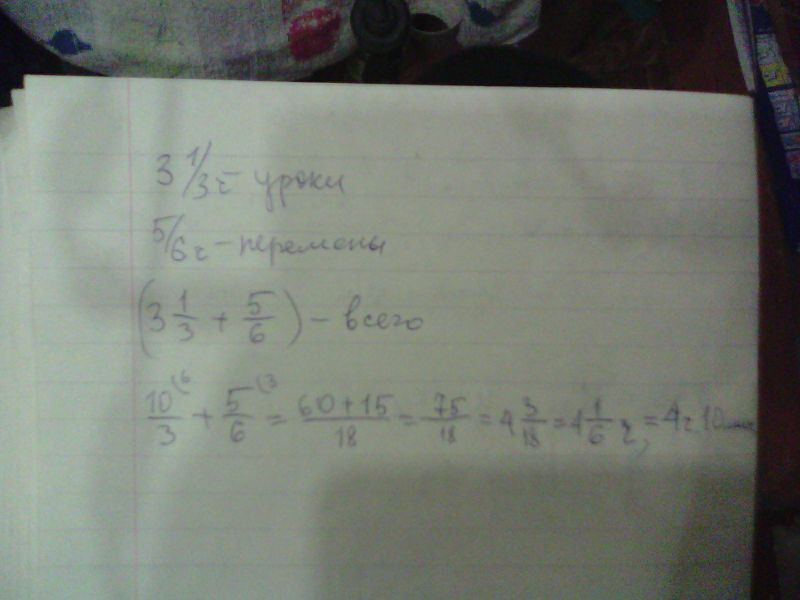 3 1/3 ч - уроки
5/6 ч - перемены
(3 1/3 + 5/6) - всего
10/3 (6 + 5/6 (3 = 60+15/18 = 75/18 = 4 3/18 = 4 1/6 ч, = 4 ч 10 мин